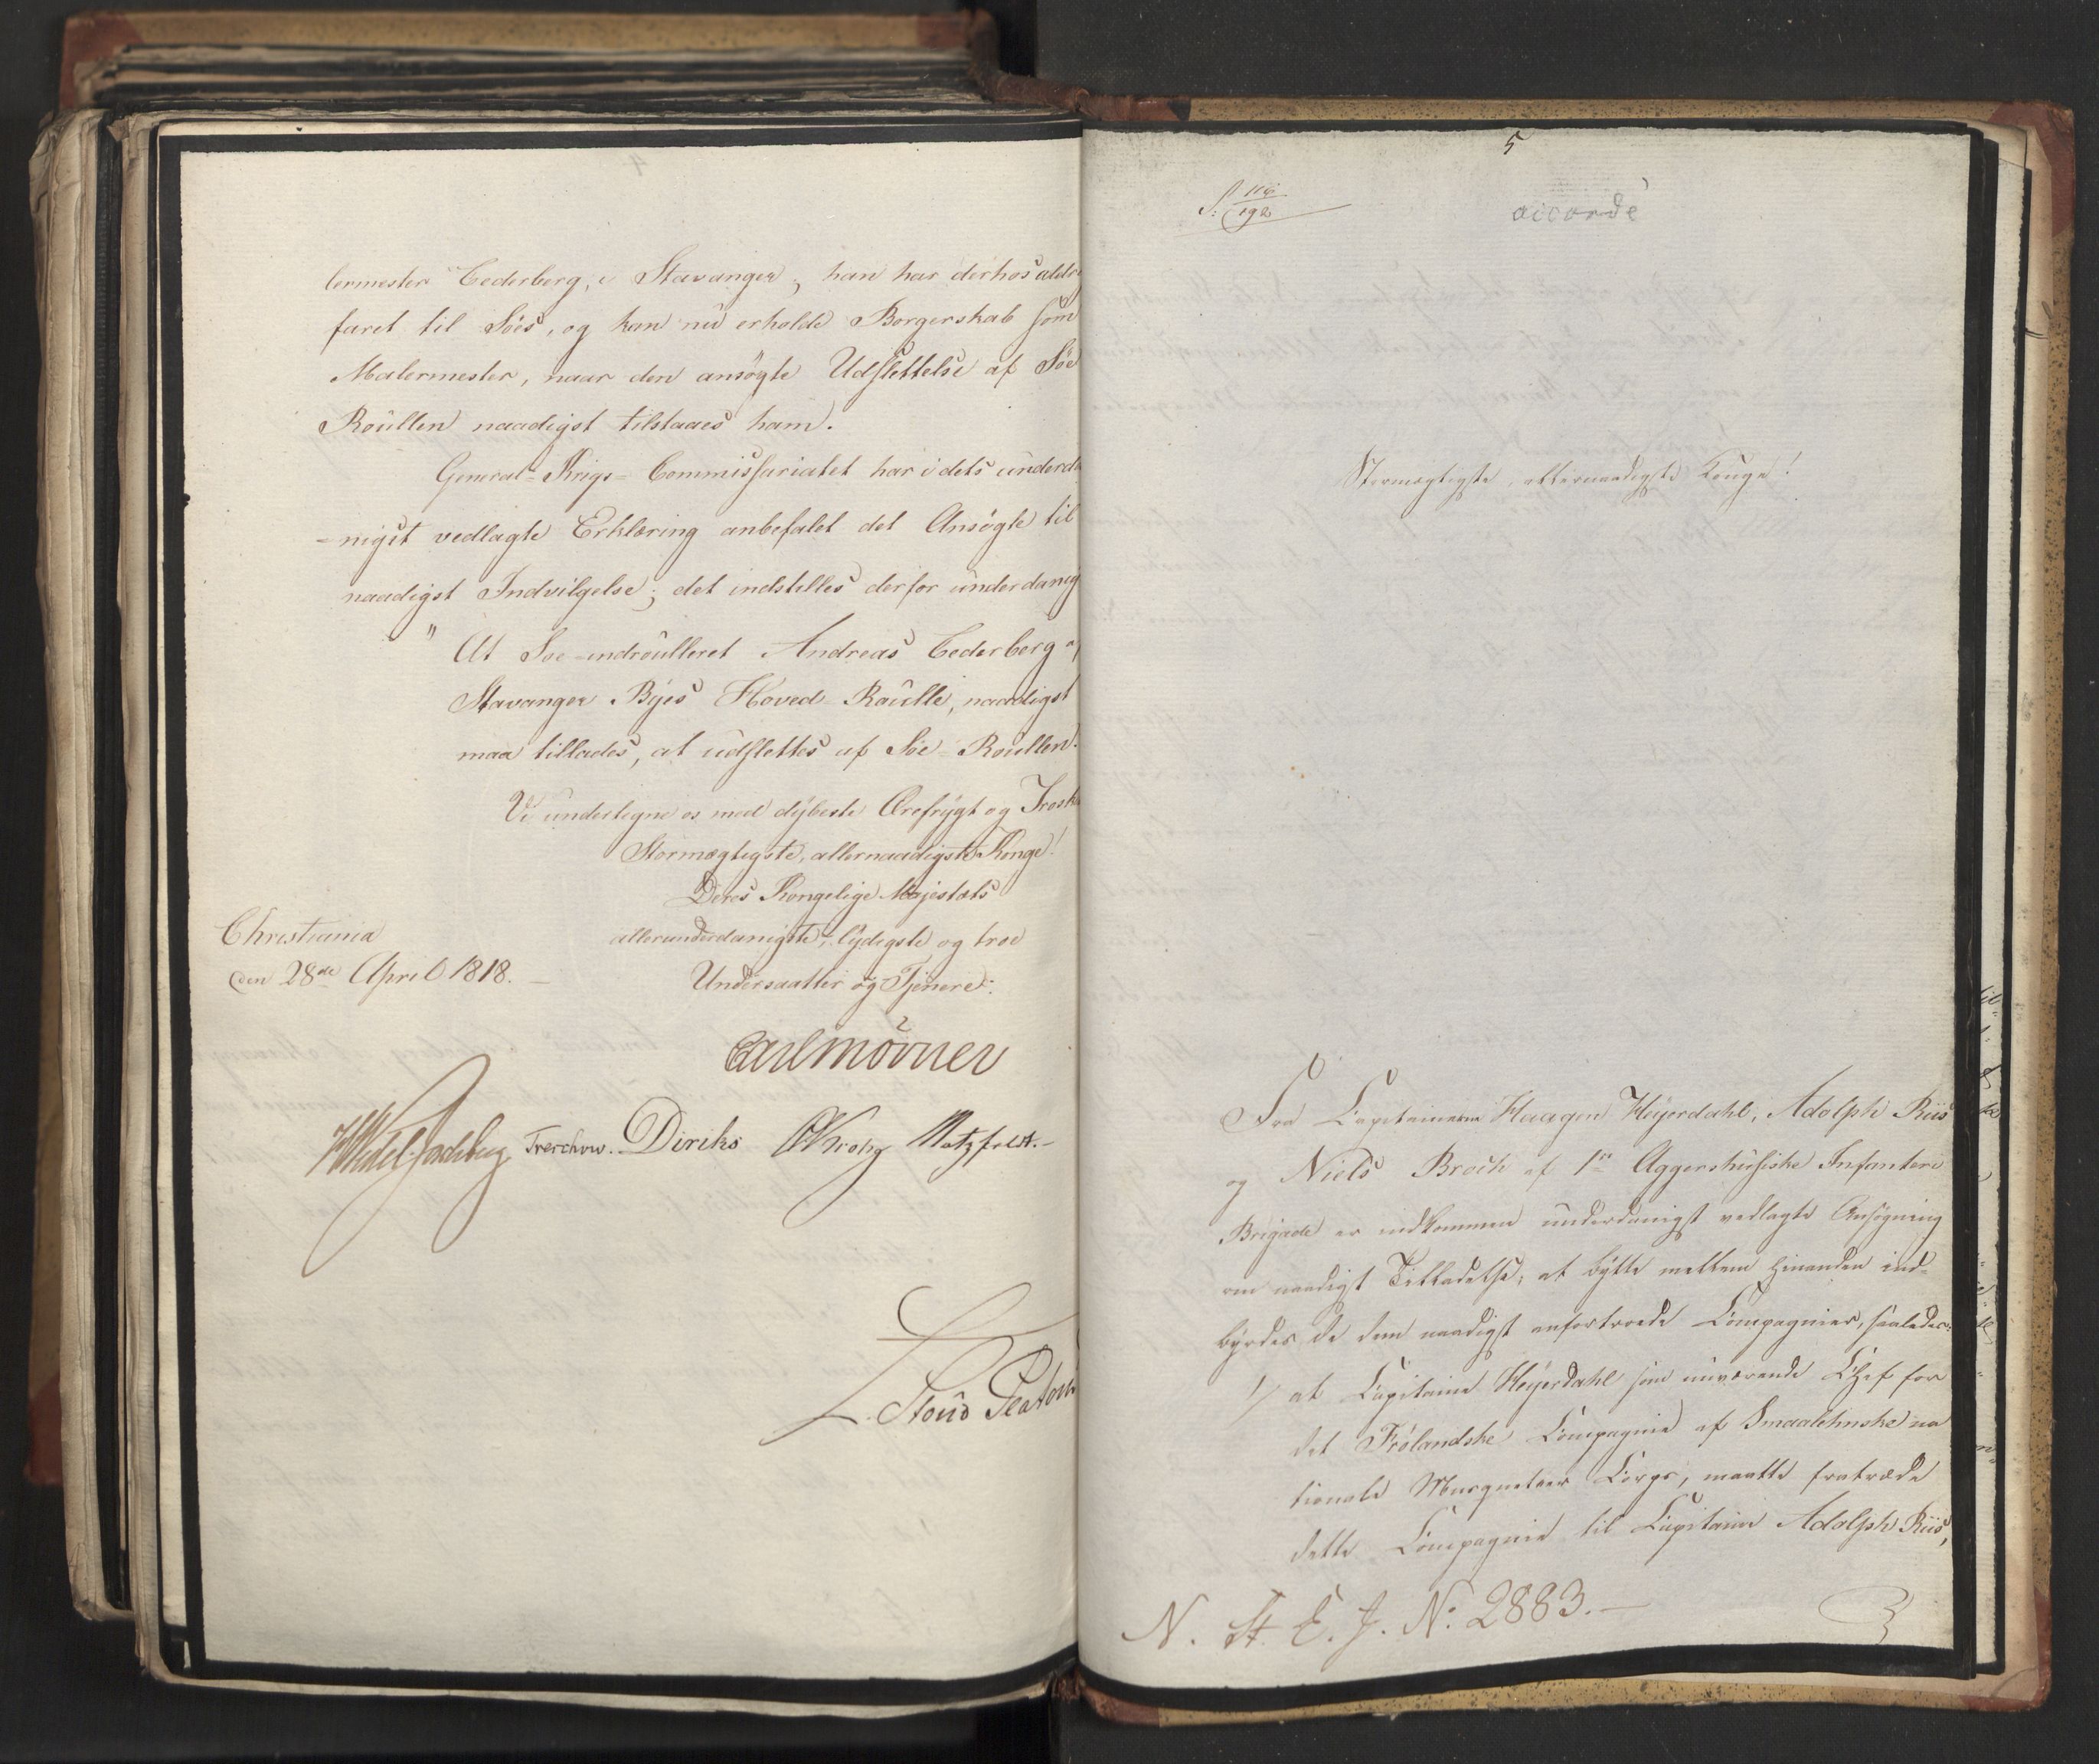 lermester Cederberg, i Stavanger; han har derhos aldri
faret til Søes, og kan nu erholde Borgerskab som
Malermester, naar den ansøgte Udslettelse af Søe
Roullen naadigst tilstaaes ham.
General-Krigs-Commissariatet har i dets underda
=nigst vedlagte Erklæring anbefalet det Ansøgte til
naadigst Indvilgelse; det indstilles derfor underdanig
" At Søe-indroulleret Andreas Cederberg af
Stavanger Byes Hoved-Roulle, naadigst
maa tillades, at udslettes af Søe-Roullen.
Vi undertegne os med dybeste Ærefrygt og Trosk
Stormægtigste, allernaadigste Konge!
Deres Kongelige Majestæts
Christiania
den 28de April 1818. –
allerunderdanigste, lydigste og troe
Undersaatter og Tjenere.
Carl Mörner
HWedel Jarlsberg Treschow. Diriks CKrohg Motzfeldt.
L. Stoud Platou
5
S: 116/192
accordé
Stormægtigste, allernaadigste Konge!
Fra Capitainerne Haagen Heyerdahl, Adolph Riis
og Niels Broch af 1ste Aggershusiske Infanterie
Brigade er indkommen underdanigst vedlagte Ansøgning
om naadigst Tilladelse, at bytte mellem hinanden ind-
byrdes de dem naadigst anfortroede Compagnier, saaledes:
1/ at Capitaine Heyerdahl som nuværende Chef for
det Frølandske Compagnie af Smaalehnske na
tionale Musqueteer Corps, maatte fratræde
dette Compagnie til Capitaine Adolph Riis,
N. St. E. J. No. 2883. –